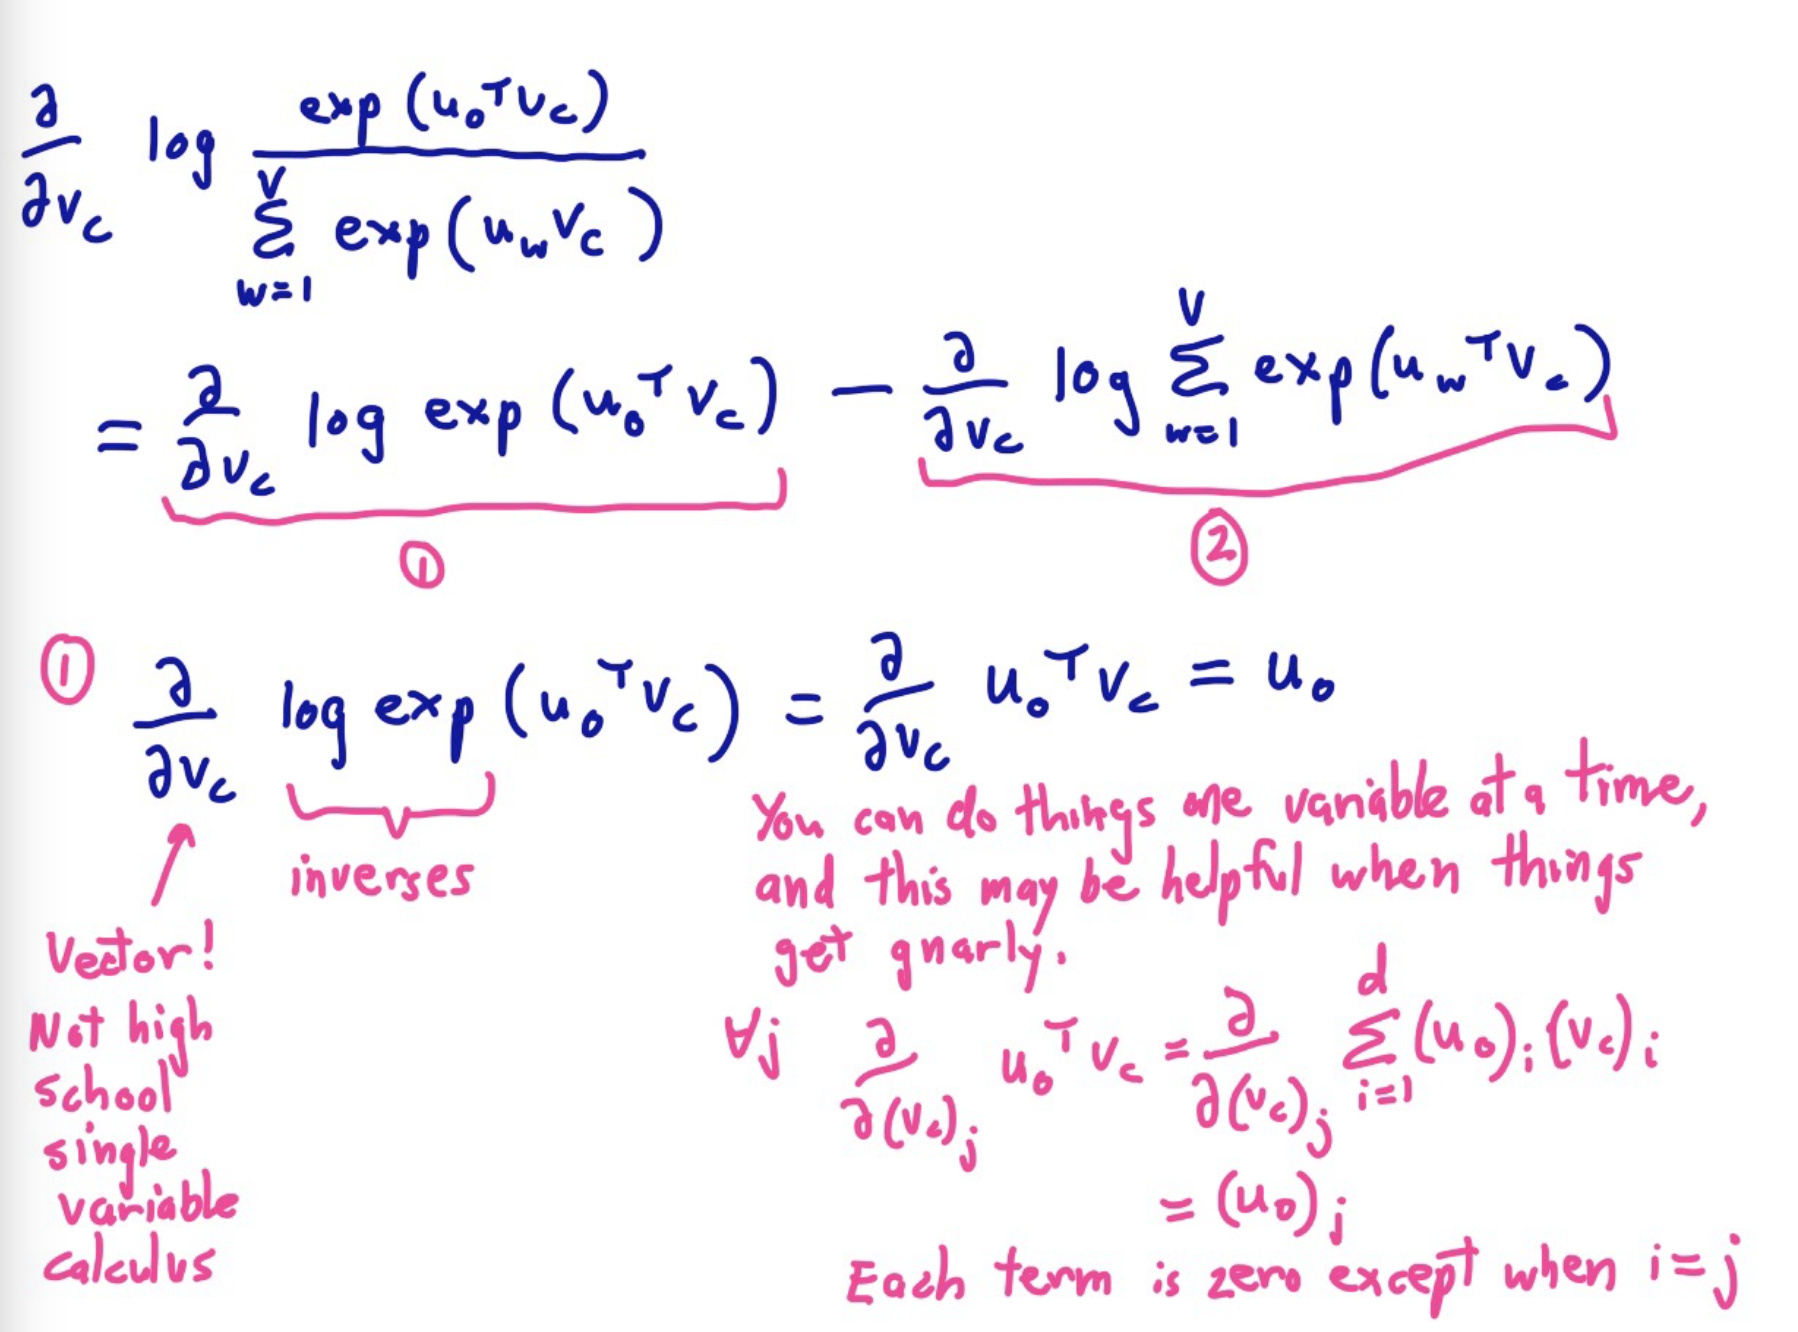 ∂/∂v_c log exp(u_o^T v_c) / ∑_{w=1}^{V} exp(u_w v_c)
= ∂/∂v_c log exp(u_o^T v_c) − ∂/∂v_c log ∑_{w=1}^{V} exp(u_w^T v_c)
① ②
① ∂/∂v_c log exp(u_o^T v_c) = ∂/∂v_c u_o^T v_c = u_o
inverses
Vector!
Not high
school
single
variable
calculus
You can do things one variable at a time,
and this may be helpful when things
get gnarly.
∀j ∂/∂(v_c)_j u_o^T v_c = ∂/∂(v_c)_j ∑_{i=1}^{d} (u_o)_i (v_c)_i
= (u_o)_j
Each term is zero except when i=j